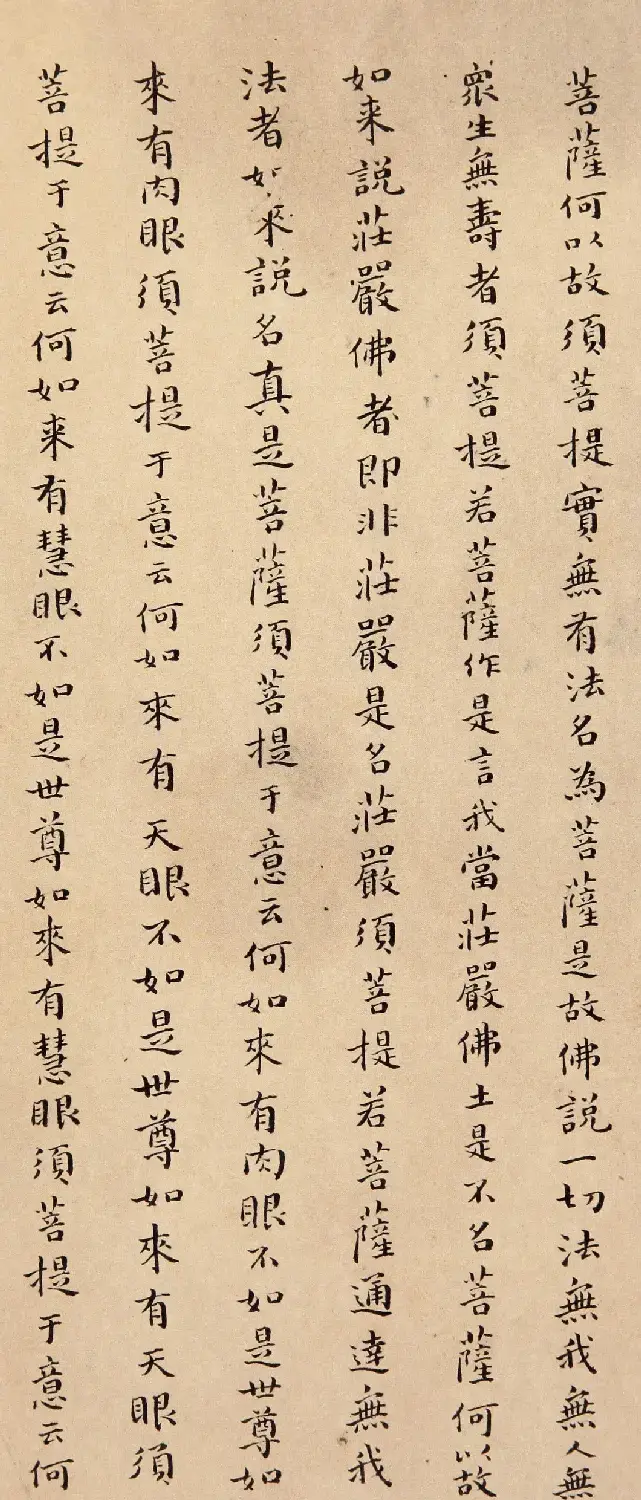 菩薩何以故須菩提實無有法名為菩薩是故佛說一切法無我無人無
衆生無壽者須菩提若菩薩作是言我當莊嚴佛土是不名菩薩何以故
如来說莊嚴佛者即非莊嚴是名莊嚴須菩提若菩薩通達無我
法者如來説名真是菩薩須菩提于意云何如來有肉眼不如是世尊如
來有肉眼須菩提于意云何如來有天眼不如是世尊如來有天眼須
菩提于意云何如来有慧眼不如是世尊如來有慧眼須菩提于意云何